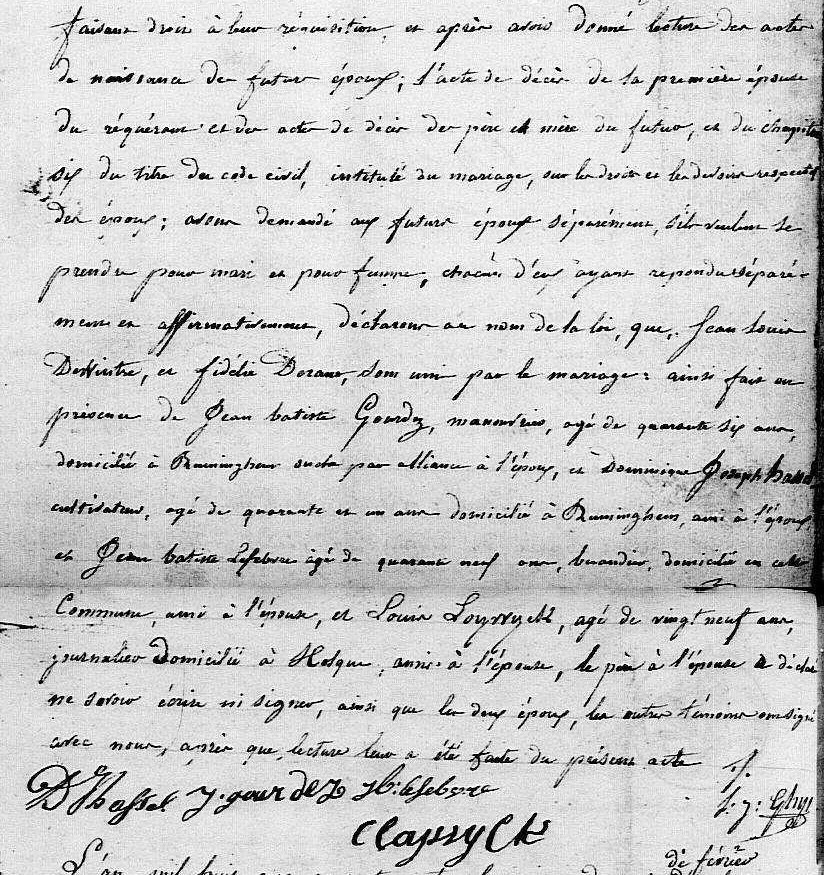 faisant droit à leur réquisition, et après avoir donné lecture des actes
de naissance des futurs époux; l'acte de décès de la première épouse
du réquérant et des actes de décès des père et mère du futur, et du chapitre
six du titre du code civil, intitulé du mariage, sur les droits et les devoirs respectifs
des époux; avons demandé aux futurs époux séparément, s'ils veulent se
prendre pour mari et pour femme, chacun d'eux ayant repondu séparé-
ment et affirmativement, déclarons au nom de la loi, que, Jean Louis
et fidélie Dorane, sont unis par le mariage: ainsi fait en
présence de Jean batiste Gourdez, manouvrier, agé de quarante six ans,
domicilié à Ruminghem oncle par alliance à l'époux, et Dominique Joseph hassel
cultivateur, agé de quarante et un ans domicilié à Ruminghem, ami à l'époux
et Jean batiste Lefebvre âgé de quarante neuf ans, domicilié en cette
Commune, ami à l'épouse, et Louis agé de vingt neuf ans,
journalier domicilié à Holque, ami à l'épouse, le père à l'épouse a déclaré
ne savoir écrire ni signer, ainsi que les deux époux, les autres témoins ont signé
avec nous, après que lecture leur a été faite du présent acte
D hassel J. gourdez Jb. lefebvre
L'an mil huit
de février